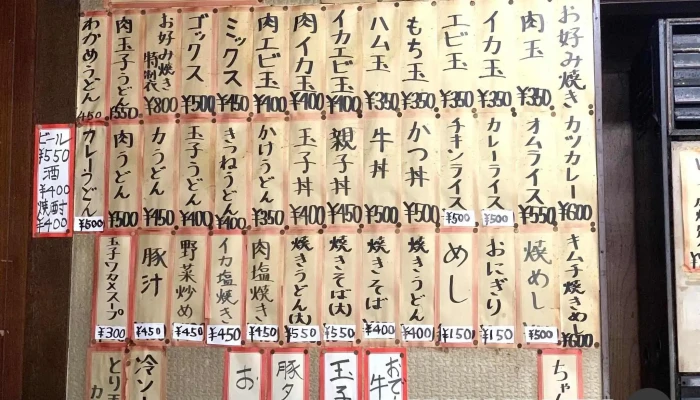 お好み焼き
肉玉 ¥350
イカ玉 ¥350
エビ玉 ¥350
もち玉 ¥350
ハム玉 ¥350
イカエビ玉 ¥400
肉イカ玉 ¥400
肉エビ玉 ¥400
ミックス ¥450
ゴックス ¥500
お好み焼き 特製衣 ¥800
肉玉子うどん ¥550
わかめうどん 450
カツカレー ¥600
オムライス ¥550
カレーライス ¥500
チキンライス ¥500
かつ丼 ¥500
牛丼 ¥500
親子丼 ¥450
玉子丼 ¥400
かけうどん ¥350
きつねうどん ¥400
玉子うどん ¥400
カうどん ¥450
肉うどん ¥500
カレーうどん ¥500
ビール
¥550
酒
¥400
焼酎
¥400
キムチ焼きめし ¥600
焼めし ¥500
おにぎり ¥150
めし ¥150
焼きうどん ¥400
焼きそば ¥400
焼きそば(大) ¥550
焼きうどん(大) ¥550
肉塩焼き ¥450
イカ塩焼き ¥450
野菜炒め ¥450
豚汁 ¥450
玉子ワカメスープ ¥300
ちゃん
おで
牛
玉子
豚タ
お
冷ソー
とり玉
カ